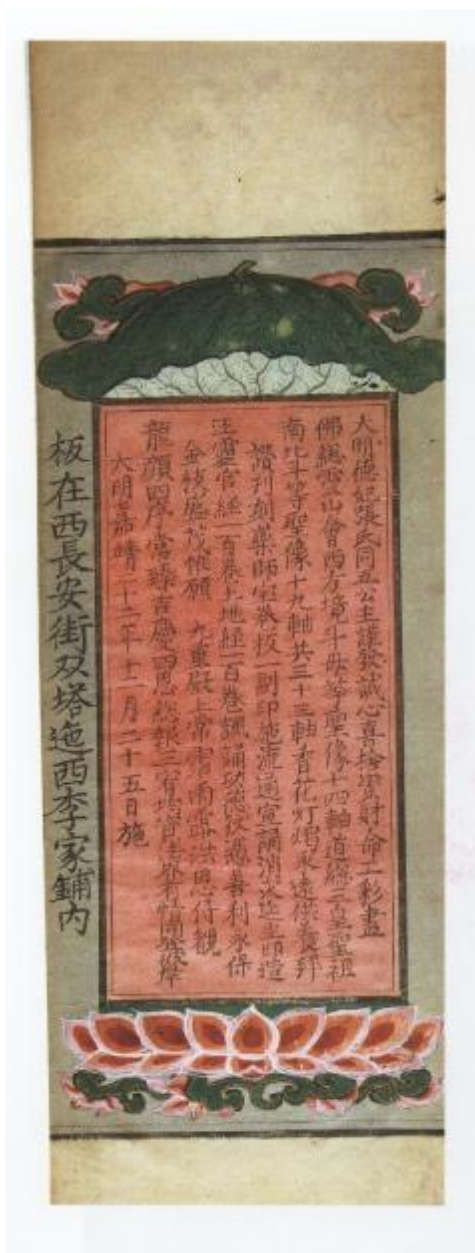 大明德妃張氏同五公主謹發誠心喜捨資財命工彩畫
佛總靈山會西方境斗母等聖像十四軸道總三皇聖祖
南北斗等聖像十九軸共三十三軸香花灯燭永遠供養拜
讚刊刻藥師寶卷板一副印施流通宣誦消災延生即造
王靈官經一百卷土地經一百卷諷誦功德以憑善利永保
金枝茂惟願 九重殿上常霑雨露洪恩侍觀
龍顏四序常臻吉慶四恩總報三宥均資法界有情同登彼岸
大明嘉靖二十二年十二月二十五日施
板在西長安街双塔迤西李家鋪内